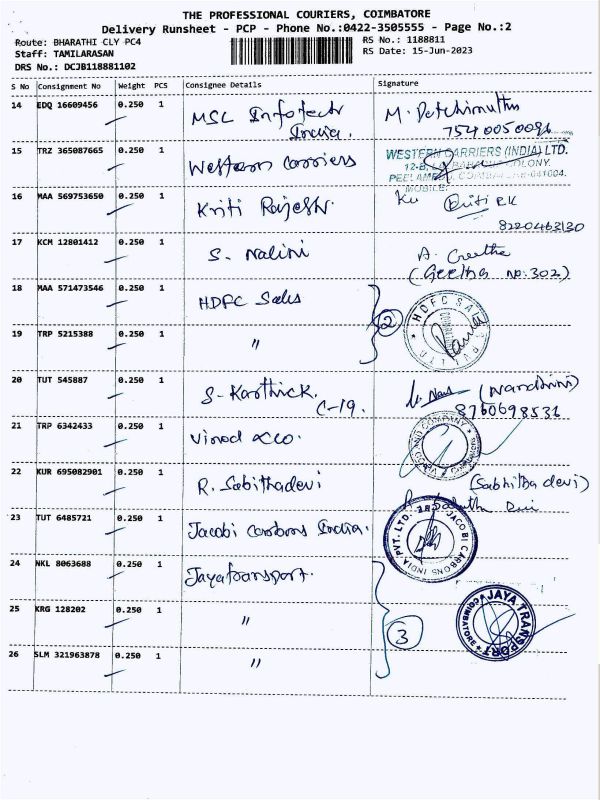 THE PROFESSIONAL COURIERS, COIMBATORE
Delivery Runsheet - PCP - Phone No.:0422-3505555 - Page No.:2
Route: BHARATHI CLY PC4
RS No.: 1188811
Staff: TAMILARASAN
RS Date: 15-Jun-2023
DRS No.: DCJB118881102
S No Consignment No Weight PCS Consignee Details Signature
14 EDQ 16609456 0.250 1 MSL Infotech
India.
M. Petchimuthu
7540050096
15 TRZ 365087665 0.250 1 Western Carriers
WESTERN CARRIERS (INDIA) LTD.
COLONY.
MOBILE:
16 MAA 569753650 0.250 1 Kriti Rajesh.
Kriti RK
8220463130
17 KCM 12801412 0.250 1 S. Nalini
A. Geetha
(Geetha no:302)
18 MAA 571473546 0.250 1 HDFC Sales
2
HDFC SALES PVT LTD
19 TRP 5215388 0.250 1 "
20 TUT 545887 0.250 1 S-Karthick.
C-19.
(Nandhini)
8760698531
21 TRP 6342433 0.250 1 Vinod &co.
AND COMPANY
22 KUR 695082901 0.250 1 R. Sabithadevi
(Sabhitha devi)
23 TUT 6485721 0.250 1 Jacobi Carbons India.
JACOBI CARBONS INDIA PVT. LTD.
24 NKL 8063688 0.250 1 Jayatransport.
25 KRG 128202 0.250 1 "
3
JAYA TRANSPORT
COIMBATORE
26 SLM 321963878 0.250 1 "